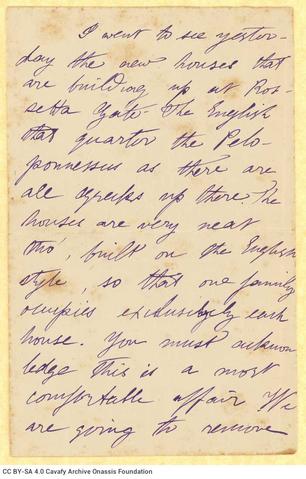 I went to see yester-
day the new houses that
are building up at Ros-
setta Gate. The English
that quarter the Pelo-
ponnessus as there are
all Greeks up there. The
houses are very neat
tho', built on the English
style, so that one family
occupies exclusively each
house. You must acknow
ledge this is a most
comfortable affair We
are going to remove
CC BY-SA 4.0 Cavafy Archive Onassis Foundation